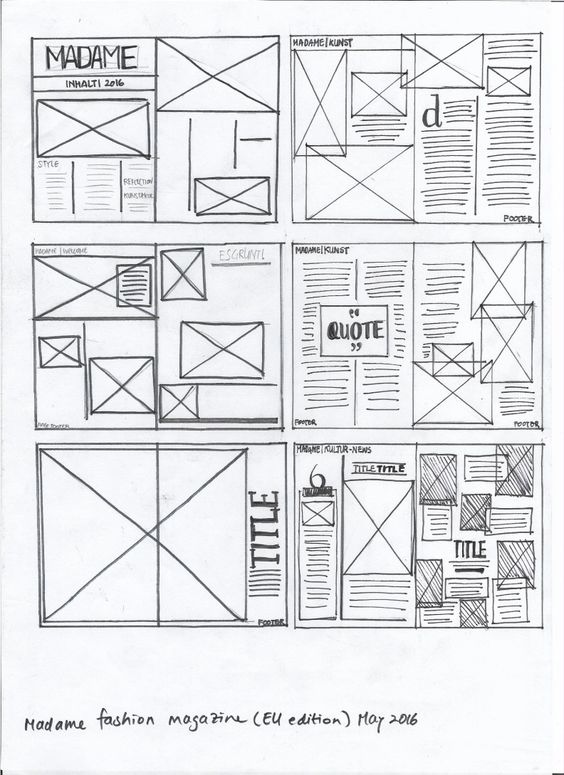 MADAME
INHALT| 2016
STYLE
REDACTION
MADAME|KUNST
d
FOOTER
MADAME|WELCOME
ESGRUNTI
PAGE FOOTER
MADAME|KUNST
“
QUOTE
”
FOOTER
FOOTER
TITLE
FOOTER
MADAME|KULTUR-NEWS
6
TITLETITLE
TITLE
Madame fashion magazine (EU edition) May 2016